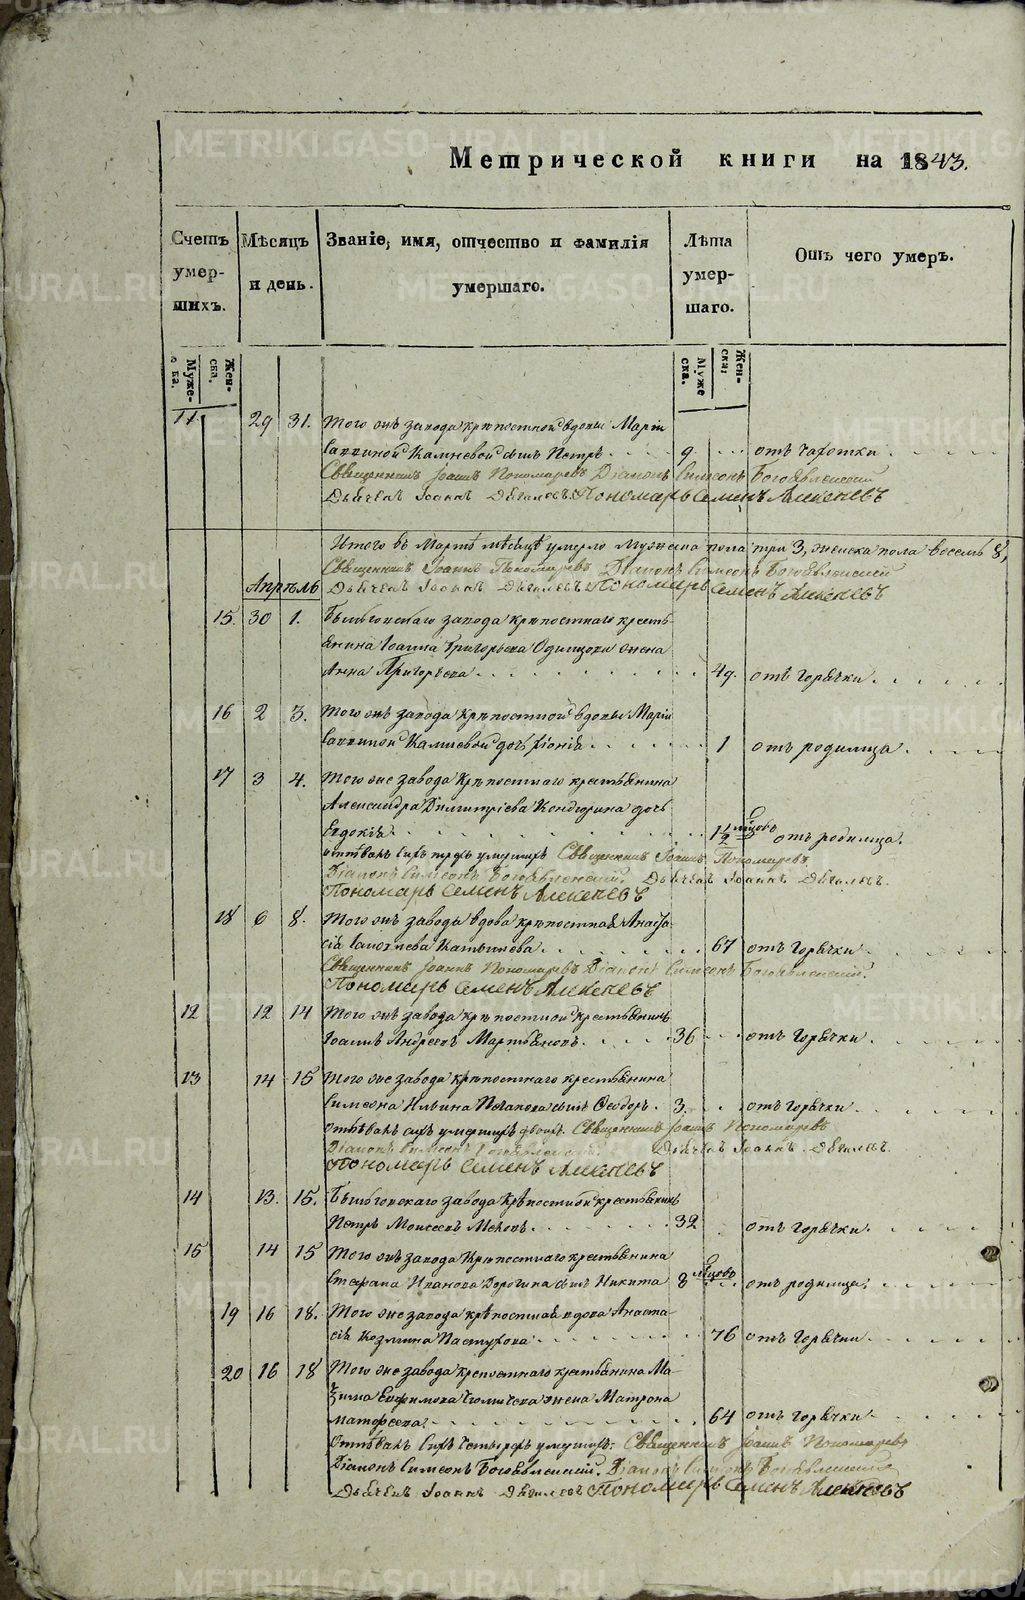 METRIKI.GASO-URAL.RU
Метрической книги на 1843.
Счетъ умершихъ.
Мѣсяцъ и день.
Званіе, имя, отчество и фамилія умершаго.
Лѣта умершаго.
Отъ чего умеръ.
Мужеска.
Женска.
Мужеска.
Женска.
11. 29 31. Того жъ завода крѣпостной вдовы Маріи
Саввиной Камневой сынъ Петръ 9. отъ чахотки
Священникъ Іоаннъ Пономаревъ Діаконъ Симеонъ Богоявленскій
Дьячекъ Іоаннъ Пономарь Семенъ Алексеевъ
Итого въ Мартѣ мѣсяцѣ умерло мужеска пола три 3, женска пола восемь 8,
Священникъ Іоаннъ Пономаревъ Діаконъ Симеонъ Богоявленскій
Апрѣль
Дьячекъ Іоаннъ Пономарь Семенъ Алексеевъ
15. 30 1. завода крѣпостнаго кресть-
янина Іоанна Григорьева Одинцова жена
Анна Григорьева 49. отъ горячки
16 2 3. Того жъ завода крѣпостной вдовы Маріи
Саввиной Камневой дочь 1 отъ родимца
17 3 4. Того же завода крѣпостнаго крестьянина
Александра Димитріева Кондюрина дочь
Евдокія 1 1/2 мѣсяцовъ отъ родимца.
отпѣвалъ сихъ трехъ умершихъ Священникъ Іоаннъ Пономаревъ
Діаконъ Симеонъ Богоявленскій. Дьячекъ Іоаннъ
Пономарь Семенъ Алексеевъ
18 6 8. Того жъ завода вдова крѣпостная Анаста-
сія 67 отъ горячки
Священникъ Іоаннъ Пономаревъ Діаконъ Симеонъ Богоявленскій.
Пономарь Семенъ Алексеевъ
12 12 14 Того жъ завода крѣпостной крестьянинъ
Іоаннъ Андреевъ Мартьяновъ 36 отъ горячки
13 14 15 Того же завода крѣпостнаго крестьянина
Симеона Ильина Потапова сынъ Ѳеодоръ 3. отъ горячки
отпѣвалъ сихъ умершихъ двоихъ Священникъ Іоаннъ Пономаревъ
Діаконъ Симеонъ Богоявленскій Дьячекъ Іоаннъ
Пономарь Семенъ Алексеевъ
14 13. 15. завода крѣпостной крестьянинъ
Петръ Моисеевъ Меховъ 32 отъ горячки
15 14 15 Того жъ завода крѣпостнаго крестьянина
Стефана Иванова Дорогина сынъ Никита 8 мѣсяцовъ отъ родимца
19 16 18. Того же завода крѣпостная вдова Анаста-
сія Козмина Пастухова 76 отъ горячки
20 16 18 Того же завода крепостнаго крестьянина Ма-
ѯима Евфимова жена Матрона
Матфеева 64 отъ горячки
Отпѣвалъ сихъ четырехъ умершихъ. Священникъ Іоаннъ Пономаревъ
Діаконъ Симеонъ Богоявленскій. Діаконъ Симеонъ Богоявленскій
Дьячекъ Іоаннъ Пономарь Семенъ Алексеевъ